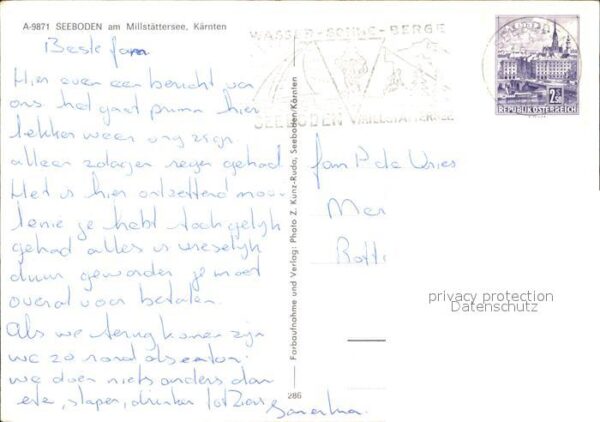 A-9871 SEEBODEN am Millstättersee, Kärnten
Beste fam
Hier even een bericht van
ons het gaat prima hier
lekker weer
alleen zolagen regen gehad
Het is hier ontzettend mooi
Tenie je hebt toch gelijk
gehad alles is vreselijk
duur geworden je moet
overal voor betalen.
Als we terug komen zijn
we zo rond als een ton.
we doen niets anders dan
ete, slapen, drinken tot ziens
WASSER-SONNE-BERGE
SEEBODEN MILLSTÄTTERSEE
2.50
REPUBLIK ÖSTERREICH
fam P de Vries
Mar
Rott
Farbaufnahme und Verlag: Photo Z. Kunz-Ruda, Seeboden/Kärnten
286
privacy protection
Datenschutz